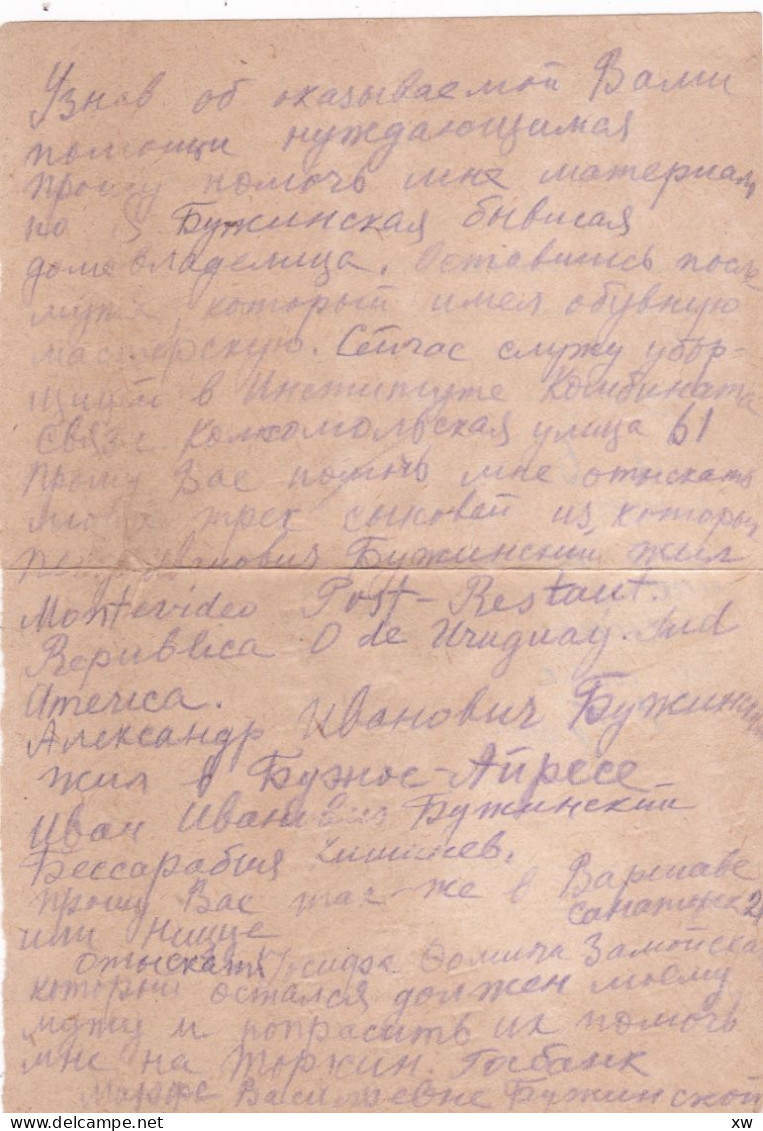 Узнав об оказываемой Вами
помощи нуждающимся
прошу помочь мне материаль
но Я Бужинская бывшая
домовладелица. Оставшись после
мужа, который имел обувную
мастерскую. Сейчас служу убор-
щицей в Институте Комбината
связи Комсомольская улица 61
Прошу Вас помочь мне отыскать
моих трех сыновей из которых
Иванович Бужинский жил
Montevideo Post-Restant.
Republica O de Uruguay. Sud
America.
Александр Иванович Бужинский
жил в Буэнос-Айресе
Иван Иванович Бужинский
Бессарабия Кишинев.
Прошу Вас так-же в Варшаве
или Ницце
отыскать Фомича Замойска
который остался должен моему
мужу и попрасить их помочь
мне на Торжин. Госбанк
Марфе Васильевне Бужинской
xw